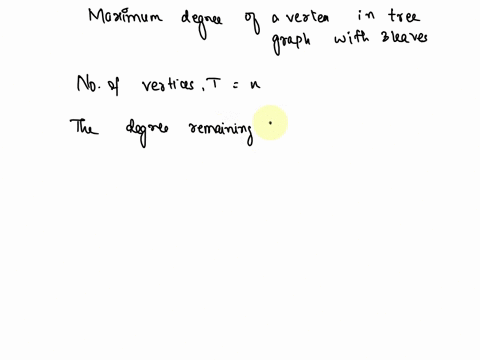 Maximum degree of a vertex in tree
graph with 3 leaves
No. of vertices, T = n
The degree remaining